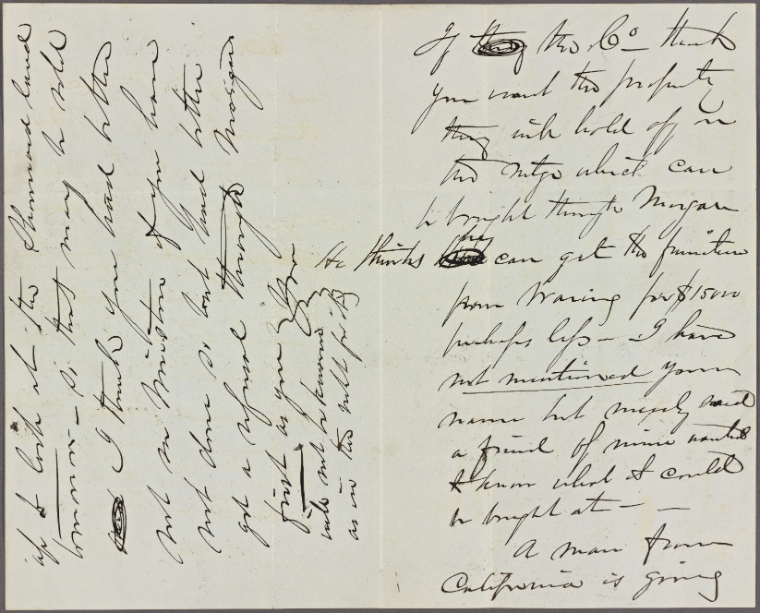 If the Co think
you want the property
they will hold off on
the mtge which can
be bought through Morgan
He thinks he can get the furniture
from Waring for $15000
perhaps less — I have
not mentioned your
name but merely said
a friend of mine wanted
to know what it could
be bought at —
A man from
California is going
up to look at the land
tomorrow — so that may be sold
I think you had better
not mention if you have
not done so but had better
get a refusal through Morgan
first as you
will not be known
as in the